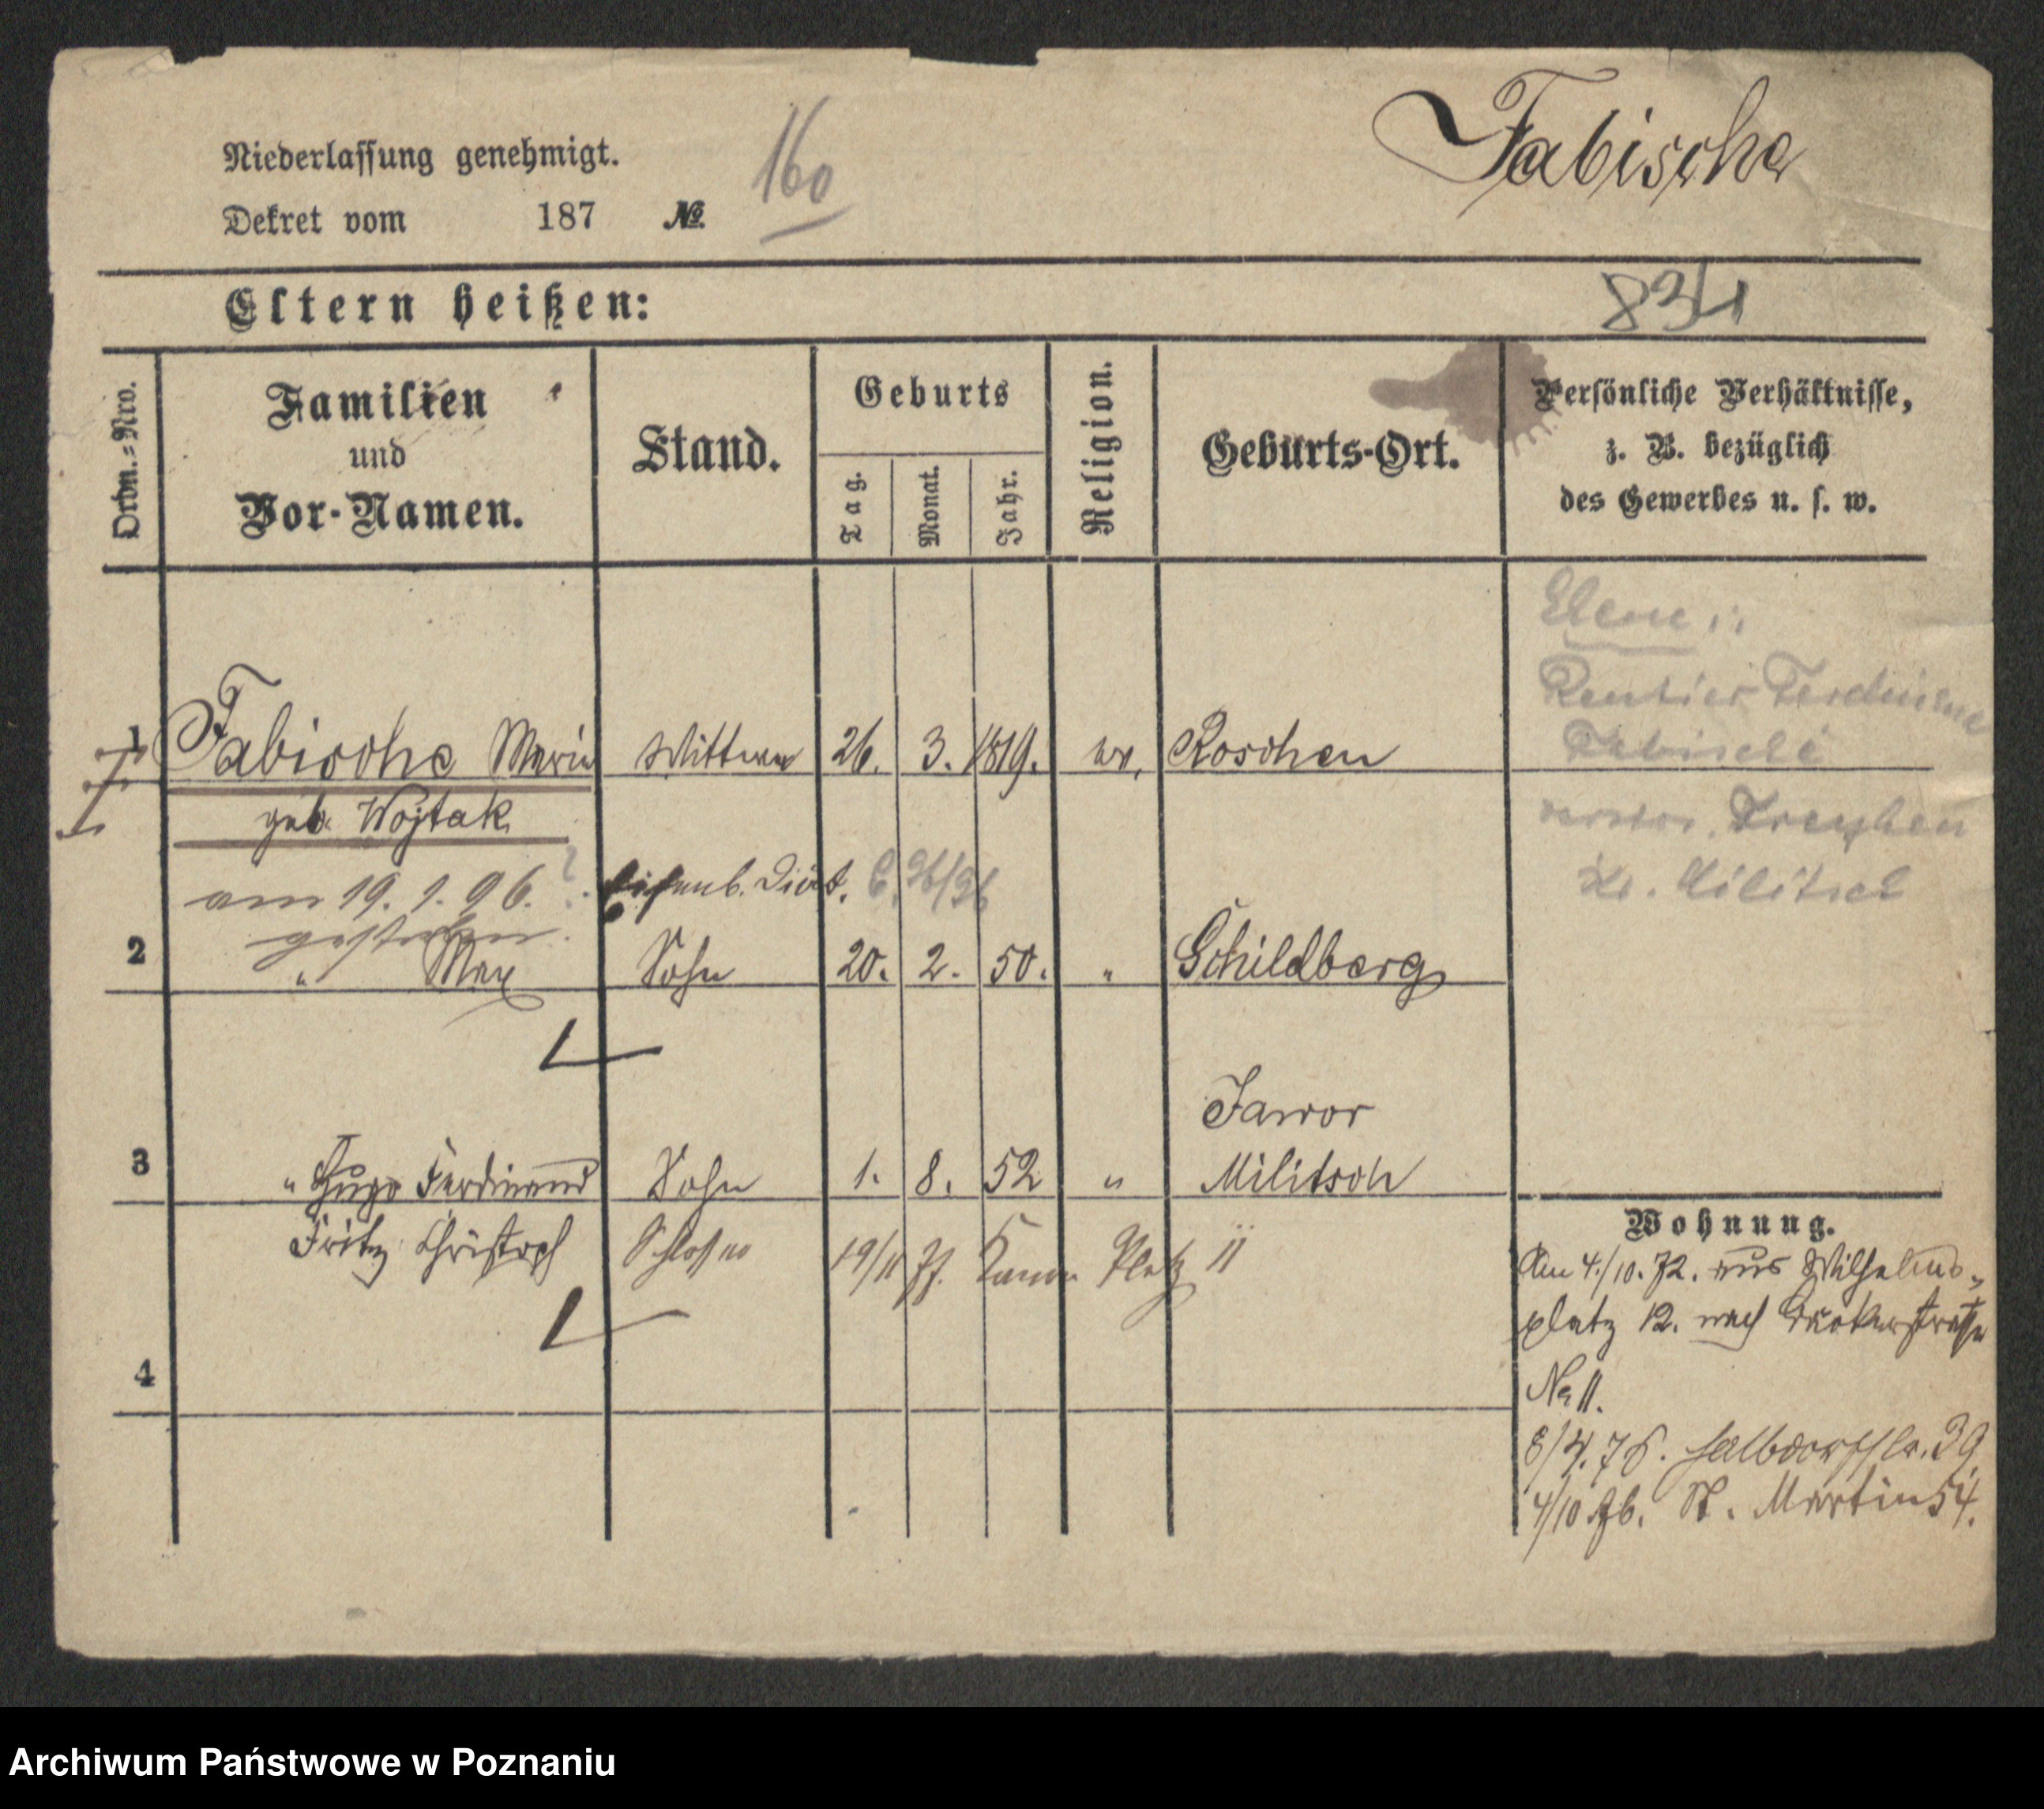 Niederlassung genehmigt.
Dekret vom 187 No. 160
Fabische
Eltern heißen:
834
Ordn.-Nro.
Familien
und
Vor-Namen.
Stand.
Geburts
Tag.
Monat.
Jahr.
Religion.
Geburts-Ort.
Persönliche Verhältnisse,
z. B. bezüglich
des Gewerbes u. s. w.
Rentier Ferdinand
Fabische
Kr. Militsch
1 Fabische Marie Wittwe 26. 3. 1819. ev. Roschen
geb. Wojtak
am 19. 1. 96.
gestorben.
Eisenb. Diät.
2 " Max Sohn 20. 2. 50. " Schildberg
Jawor
3 " Hugo Ferdinand Sohn 1. 8. 52 " Militsch
Fritz Christoph Schlosser 19/11 77. Kanon Platz 11
4
Wohnung.
Am 4./10. 72. aus Wilhelms-
platz 12. nach Bäckerstraße
No 11.
8/4. 75. Halbdorfstr. 39.
4/10 76. St. Martin 54.
Archiwum Państwowe w Poznaniu